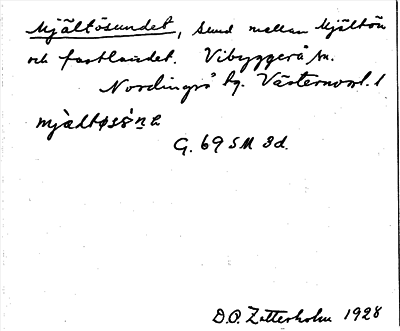 Mjältösundet, sund mellan Mjältön
och fastlandet. Vibyggerå sn.
Nordingrå tg. Västernorrl. l
G. 69 SM 3d.
D.O. Zetterholm 1928